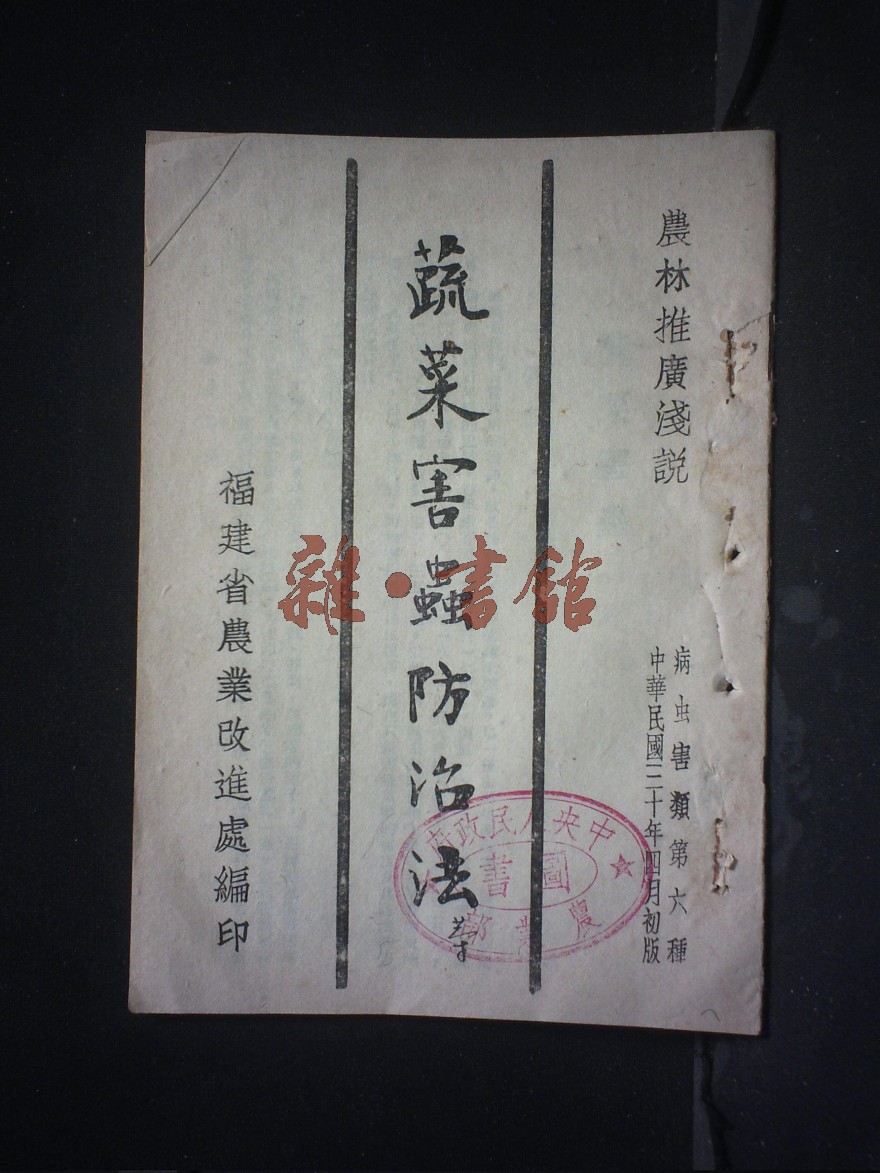 農林推廣淺説
病虫害類第六種
中華民國三十年四月初版
蔬菜害蟲防治法
福建省農業改進處編印
中央人民政府
圖書
農業部
雜·書館